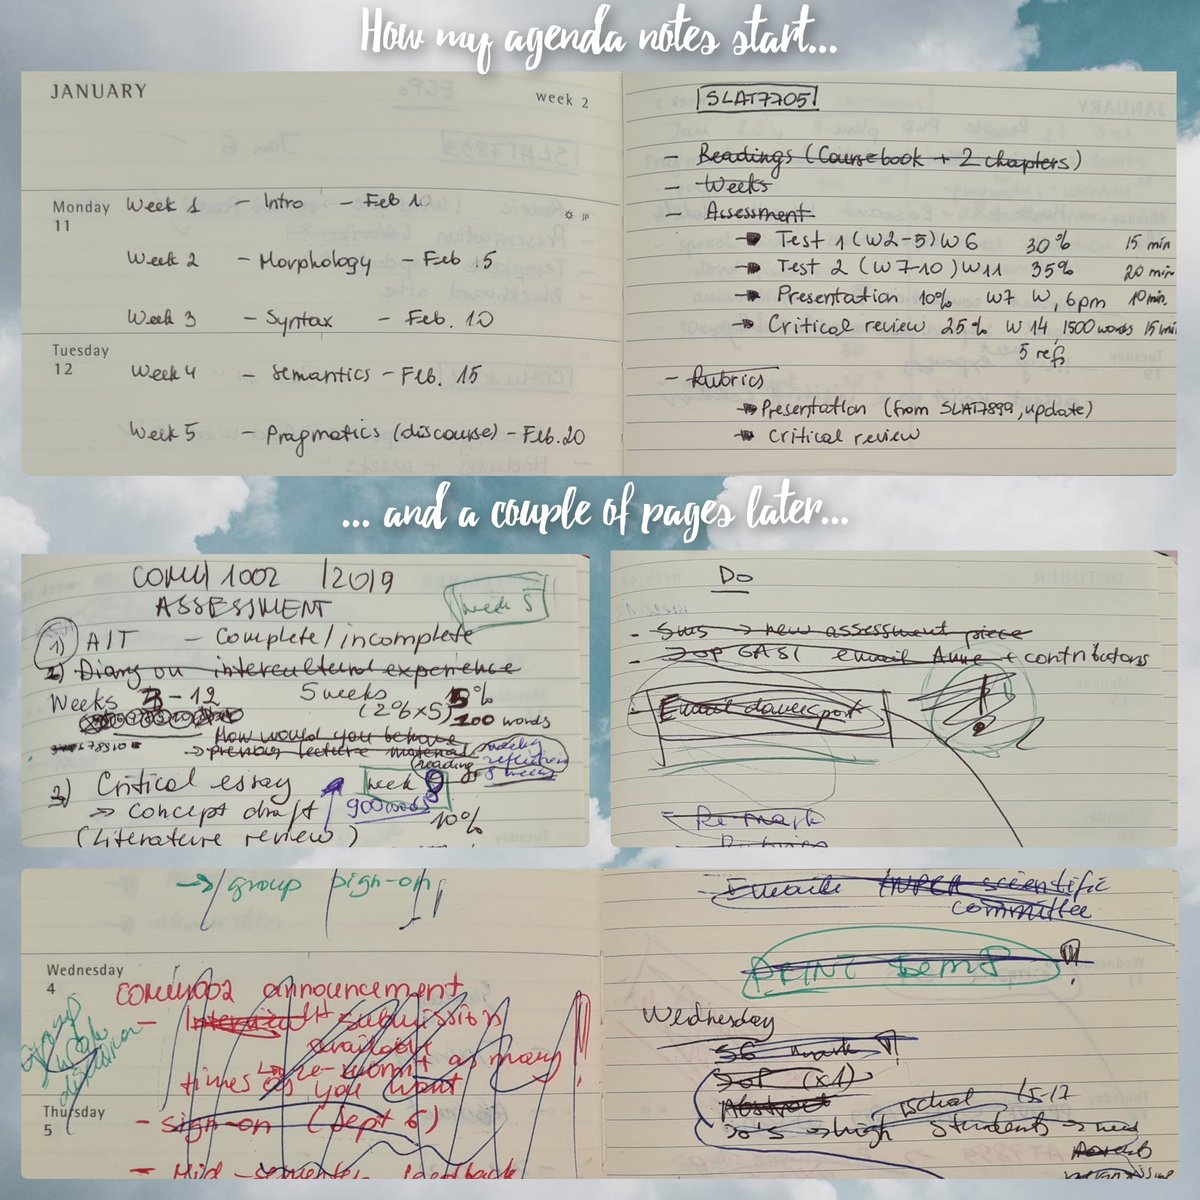 How my agenda notes start...
JANUARY
week 2
Monday
11
Week 1 - Intro - Feb 10
JP
Week 2 - Morphology - Feb 15
Week 3 - Syntax - Feb. 10
Tuesday
12
Week 4 - Semantics - Feb. 15
Week 5 - Pragmatics (discourse) - Feb. 20
SLAT7705
- Readings (Coursebook + 2 chapters)
- Weeks
- Assessment
Test 1 (W2-5) W6 30% 15 min
Test 2 (W7-10) W11 35% 20 min
Presentation 10% W7 W, 6pm 10 min.
Critical review 25% W 14, 1500 words 15 min
5 refs
- Rubrics
Presentation (from SLAT7899, update)
Critical review
... and a couple of pages later...
COMU1002 /2019
ASSESSMENT
week 5
1) AIT - Complete/incomplete
2) Diary on intercultural experience
Weeks 3-12 5 weeks 5%
(2% x 5) 200 words
How would you behave
→ previous lecture material
reading
weekly
reflection
3) Critical essay week 9
→ concept draft 900 words
10%
(literature review)
Do
- SMS → new assessment piece
- JOP GASI email Anne + contributors
Email davenport
- Re-mark
→ group sign-on
Wednesday
4
COMU1002 announcement
- submission
available
re-submit as many
times as you want
Thursday
5
- sign-on (Sept 6)
- Mid-semester feedback
- Email scientific
committee
PRINT
Wednesday
SG mark
JOP (x1)
Abstract
15-17
→ high students → need